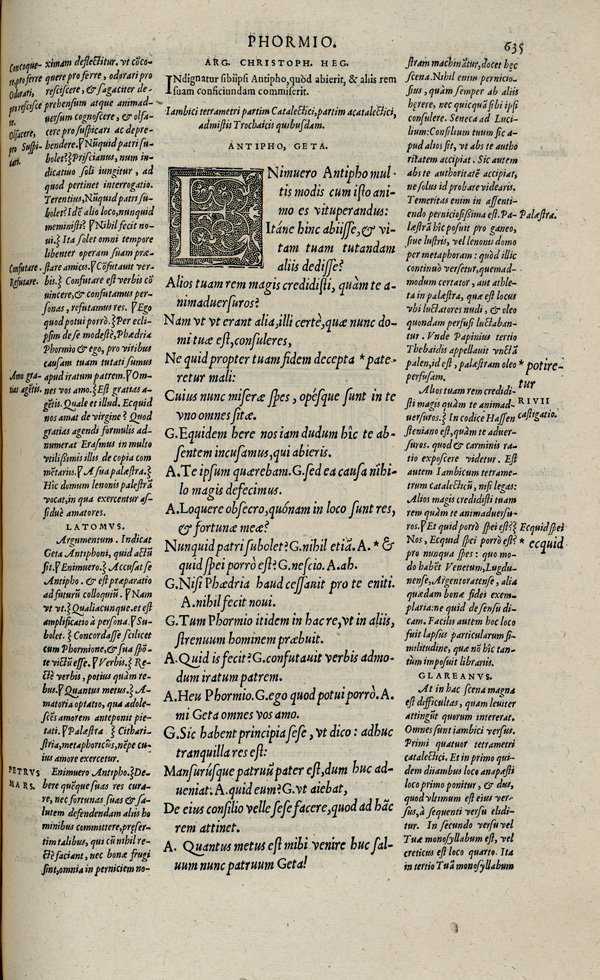 PHORMIO.
635
Concoque-
re, proferre
Odorari,
pro resciscere
Olfacere,
pro Suspi-
cari.
Confutare.
Refutare.
Amo gra-
tias agētis.
PETRVS
MARS.
ximam deflectitur. vt cōco-
quere pro ferre, odorari pro
resciscere, & sagaciter de-
prehensum atque animad-
uersum cognoscere, & olfa-
cere pro suspicari ac depre-
hendere. Nūquid patri su-
bolet? Priscianus, num in-
dicatiuo soli iungitur, ad
quod pertinet interrogatio.
Terentius, Nūquid patri su-
bolet? Idē alio loco, nunquid
meministi? Nihil fecit no-
ui. Ita solet omni tempore
libenter operam suam præ-
stare amicis. Cōfutauit ver-
bis. Confutare est verbis cō
uincere, & confutamus per-
sonas, refutamus res. Ego
quod potui porrò. Per ecli-
psim de se modestè, Phædria
Phormio & ego, pro viribus
causam tuam tutati sumus
apud iratum patrem. Om-
nes vos amo. Est gratias a-
gētis. Quale est illud. Ecquid
nos amat de virgine? Quod
gratias agendi formulis ad-
numerat Erasmus in multo
vtilissimis illis de copia com
mētariis. A sua palæstra.
Hîc domum lenonis palæstrā
vocat, in qua exercentur as-
siduè amatores.
LATOMVS.
Argumentum. Indicat
Geta Antiphoni, quid actū
sit. Enimuero. Accusat se
Antipho. & est præparatio
ad futurū colloquiū. Nam
vt vt. Qualiacunque. et est
amplificatio à persona. Su-
bolet. Concordasse scilicet
cum Phormione, & sua spō-
te victū esse. Verbis. Re-
ctè verbis, potius quàm re-
bus. Quantus metus. A-
matoria optatio, qua adole-
scēs amorem anteponit pie-
tati. Palæstra. Cithari-
stria, metaphoricῶs, nēpe cu-
ius amore exercetur.
Enimuero Antipho. De-
bere quēque suas res cura-
re, nec fortunas suas & sa-
lutem defendendam aliis ho
minibus committere, præser-
tim talibus, qui cū nihil re-
ctè faciant, nec bonæ frugi
sint, omnia in perniciem no-
ARG. CHRISTOPH. HEG.
INdignatur sibiipsi Antipho, quòd abierit, & aliis rem
suam conficiundam commiserit.
Iambici tetrametri partim Catalectici, partim acatalectici,
admistis Trochaicis quibusdam.
ANTIPHO, GETA.
ENimuero Antipho mul-
tis modis cum isto ani-
mo es vituperandus:
Itáne hinc abiisse, & vi-
tam tuam tutandam
aliis dedisse?
Alios tuam rem magis credidisti, quàm te a-
nimaduersuros?
Nam vt vt erant alia, illi certè, quæ nunc do-
mi tuæ est, consuleres,
Ne quid propter tuam fidem decepta * pate-
retur mali:
Cuius nunc miseræ spes, opésque sunt in te
vno omnes sitæ.
G. Equidem here nos iam dudum hîc te ab-
sentem incusamus, qui abieris.
A. Te ipsum quærebam. G. sed ea causa nihi-
lo magis defecimus.
A. Loquere obsecro, quónam in loco sunt res,
& fortunæ meæ?
Nunquid patri subolet? G. nihil etiā. A. * &
quid spei porrò est? G. nescio. A. ah.
G. Nisi Phædria haud cessauit pro te eniti.
A. nihil fecit noui.
G. Tum Phormio itidem in hac re, vt in aliis,
strenuum hominem præbuit.
A. Quid is fecit? G. confutauit verbis admo-
dum iratum patrem.
A. Heu Phormio. G. ego quod potui porrò. A.
mi Geta omnes vos amo.
G. Sic habent principia sese, vt dico: adhuc
tranquilla res est:
Mansurúsque patruū pater est, dum huc ad-
ueniat. A. quid eum? G. vt aiebat,
De eius consilio velle sese facere, quod ad hāc
rem attinet.
A. Quantus metus est mihi venire huc sal-
uum nunc patruum Geta!
stram machinātur, docet hec
scena. Nihil enim pernicio-
sius, quàm semper ab aliis
hęrere, nec quicquā sibi ipsi
consulere. Seneca ad Luci-
lium: Consilium tuum sic a-
pud alios sit, vt abs te autho
ritatem accipiat. Sic autem
abs te authoritatē accipiat,
ne solus id probare videaris.
Temeritas enim in assenti-
endo perniciosissima est. Pa-
læstrā hîc posuit pro ganeo,
siue lustris, vel lenonis domo
per metaphoram: quòd illic
continuò versetur, quemad-
modum certator, aut athle-
ta in palæstra, quæ est locus
vbi luctatores nudi, & oleo
quondam perfusi luctaban-
tur. Vnde Papinius tertio
Thebaidis appellauit vnctā
palen, id est, palæstram oleo
perfusam.
Alios tuam rem credidi-
sti magis quàm te animad-
uersuros. In codice Hassen
steniano est, quàm te aduer-
suros. quod & carminis ra-
tio exposcere videtur. Est
autem Iambicum tetrame-
trum catalecticū, nisi legas:
Alios magis credidisti tuam
rem quàm te animaduersu-
ros. Et quid porrò spei est?
Nos, Ecquid spei porrò est?
pro nunqua spes: quo mo-
do habēt Venetum, Lugdu-
nense, Argentoratense, alia
quædam bonæ fidei exem-
plaria: ne quid de sensu di-
cam. Facilis autem hoc loco
fuit lapsus particularum si-
militudine, quæ nō hîc tan-
tùm imposuit librariis.
GLAREANVS.
At in hac scena magna
est difficultas, quam leuiter
attingūt quorum intererat.
Omnes sunt iambici versus.
Primi quatuor tetrametri
catalectici. Et in primo qui-
dem diiambus loco anapæsti
loco primo ponitur, & dus,
quod vltimum est eius ver-
sus, à sequenti versu elidi-
tur. In secundo versu vel
Tuæ monosyllabum est, vel
creticus est loco quarto. Ita
in tertio Tuā monosyllabum
Palæstra.
* potire-
tur
RIVII
castigatio.
Ecquid spei
* ecquid